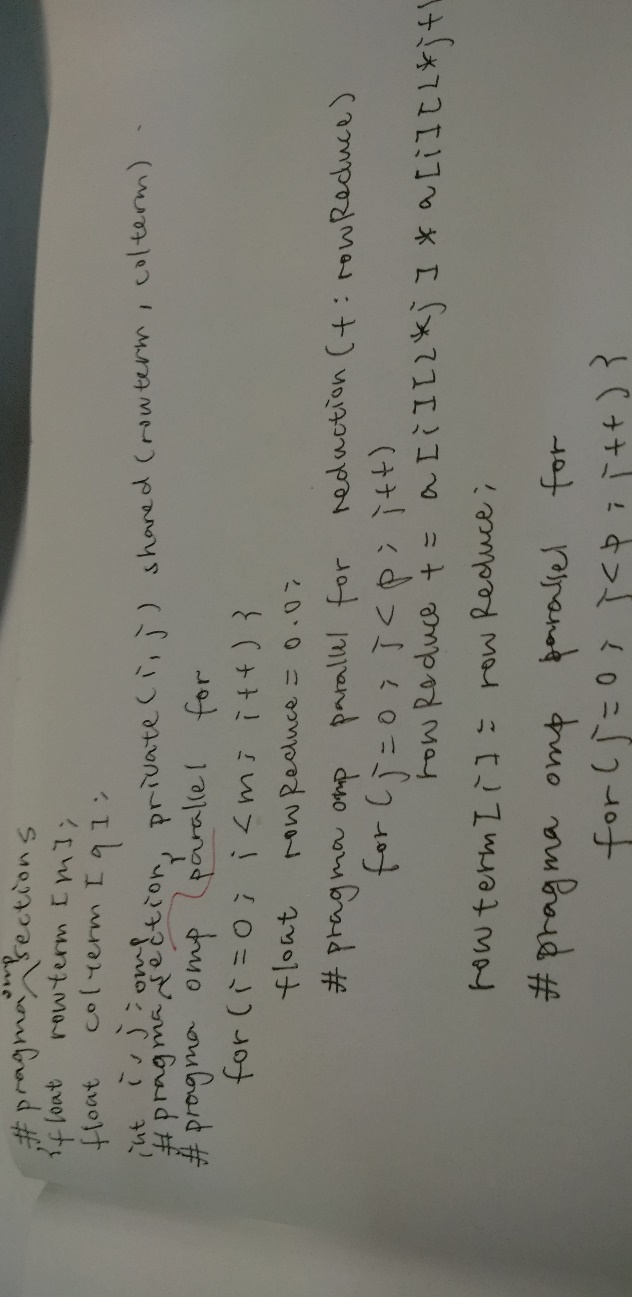 #pragma omp sections
{float rowterm[m];
float colterm[q];
int i,j;
#pragma omp section, private(i,j) shared(rowterm, colterm).
#pragma omp parallel for
for(i=0; i<m; i++){
float rowReduce = 0.0;
#pragma omp parallel for reduction(+:rowReduce)
for(j=0; j<p; j++)
rowReduce += a[i][2*j] * a[i][2*j+1
rowterm[i] = rowReduce;
#pragma omp parallel for
for(j=0; j<p; j++){